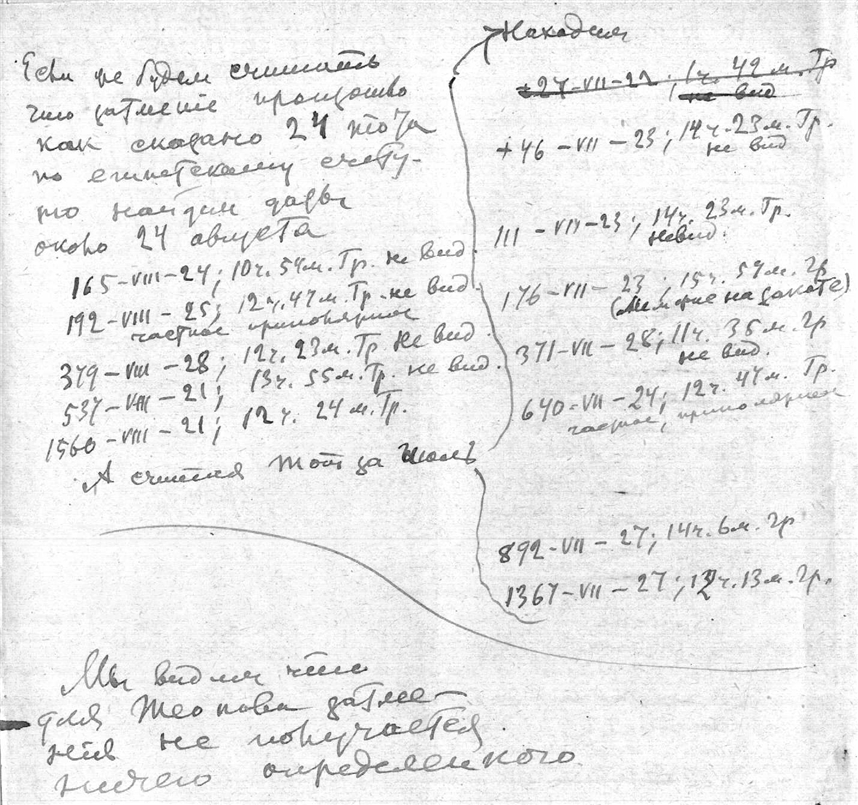 Если не будем считать
что затменіе произошло
как сказано 24 тота
по египетскому счету-
то найдем даты
около 24 августа
165-VIII-24; 10ч. 54м. Гр. не вид.
192-VIII-25; 12ч. 47м. Гр. не вид.
частное приполярное
379-VIII-28; 12ч. 23м. Гр не вид.
537-VIII-21; 13ч. 55м. Гр. не вид.
1560-VIII-21; 12ч. 24м. Гр.
А считая Тот за июль
Находим
+27-VII-22; 1ч. 42м. Гр
не вид
+46-VII-23; 14ч. 23м. Гр.
не вид
111-VII-23; 14ч. 23м. Гр.
не вид.
176-VII-23; 15ч. 59м. Гр
(на закате)
371-VII-28; 11ч. 35м. Гр
не вид.
640-VII-24; 12ч. 47м. Гр.
частное, приполярное
892-VII-27; 14ч. 6м. Гр
1367-VII-27; 12ч. 13м. Гр.
Мы видим что
для Теонова затме-
нія не получается
ничего определенного